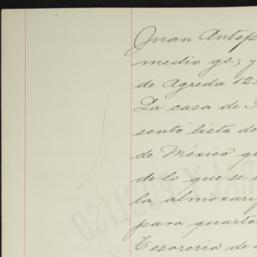 Juan Anto
medio gs; y
de Agreda 12
La casa de
sentó lista de
de México q
de lo que se
la, almoxari
para quarto
Tesoreria de